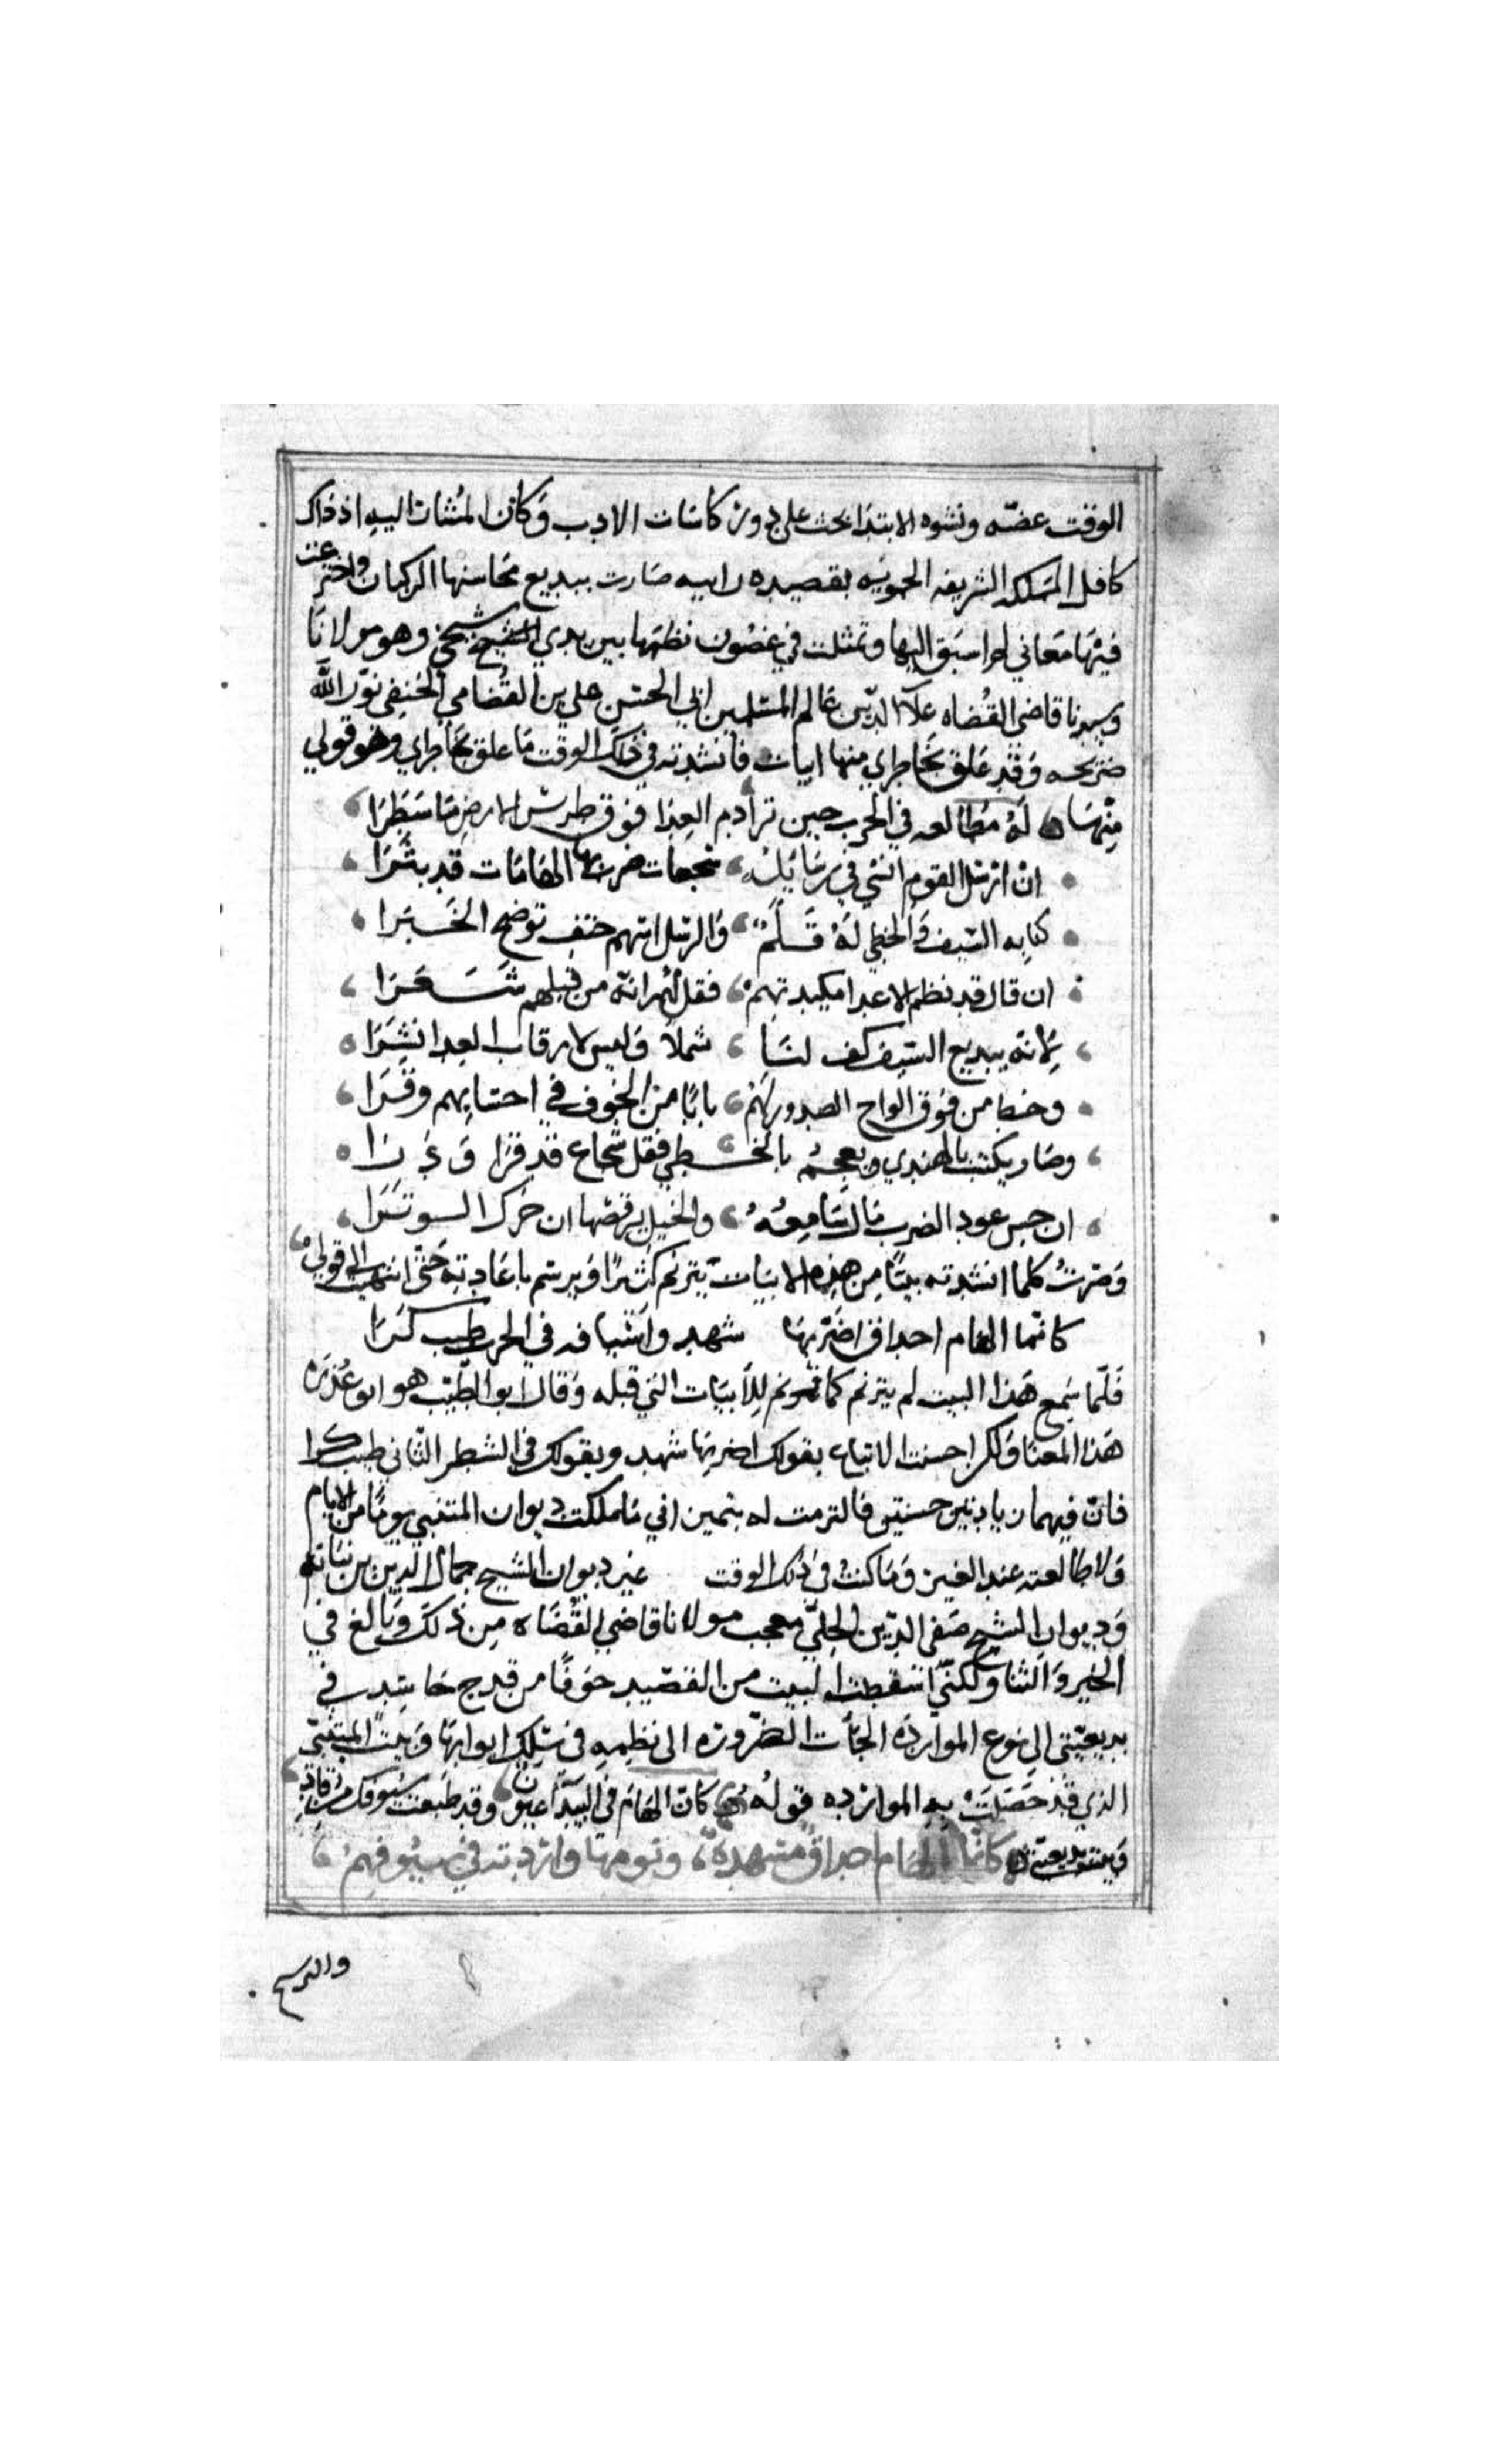 الوقت عضه ونشوه الابتدا بحث على دور كاسات الادب وكان المشار اليه اذ ذاك
كافل المملكه الشريفه الحمويه بقصيده راييه صارت ببديع محاسنها الركبان واخترعت
فيها معاني لم اسبق اليها وتمثلت في غضون نظمها بين يدي الشيخ شيخي وهو مولانا
وسيدنا قاضي القضاه علا الدين عالم المسلمين ابي الحسن علي بن القضامي الحنفي نور الله
ضريحه وقد علق بخاطري منها ابيات فانشدته في ذلك الوقت ما علق بخاطري وهو قولي
منها له مطالعه في الحرب حين ترا دم العدا فوق طرس الارض ما سطرا
ان ارسل القوم انثي في رسايله سجعات ضرب بها الهامات قد نثرا
كتابه السيف والخطي له قلم والرسل اسهم حتف توضح الخبرا
ان قال قد نظم الاعدا مكيدتهم فقل لهم انه من قبلهم شعرا
لانه ببديع السيف كف لنا شملا وليس لارقاب العدا نشرا
وخط من فوق الواح الصدور لهم بابا من الخوف في احشايهم وقرا
وصار يكتب بالهندي ويعجمه بالخطي فقل شجاع قد قرا ودرا
ان جس عود الضرب مال سامعه والخيل يرقصها ان حرك الوترا
وصرت كلما انشدته بيتا من هذه الابيات يترنم كثيرا ويرسم باعادته حتى انتهيت الى قولي
كانما الهام احداق اضر بها شهد واسيافه في الحرب طيب كرا
فلما سمع هذا البيت لم يترنم كما ترنم للابيات التي قبله وقال ابو الطيب هو ابو عذره
هذا المعنا ولكن احسنت الاتباع بقولك اضر بها شهد وبقولك في الشطر الثاني طيب كرا
فان فيهما زيادتين حسنتين فالتزمت له بيمين اني ما ملكت ديوان المتنبي يوما من الايام
ولا طالعته عند الغير وما كنت في ذلك الوقت غير ديوان الشيخ جمال الدين بن نباته
وديوان الشيخ صفي الدين الحلي معجب مولانا قاضي القضاه من ذلك وبالغ في
الخير والثنا ولكني اسقطت البيت من القصيد خوفا من قدح حاسد في
بديعيتي الى نوع الموارده الجات الضروره الى نظمه في سلك ابوابها وبيت المتنبي
الذي قد حصلت به الموارده قوله كان الهام في الهيجا عيون وقد طبعت سيوفك من رقاد
وبيت بديعيتي كانما الهام احداق مسهدة ونومها واردته في سيوفهم
والرسم